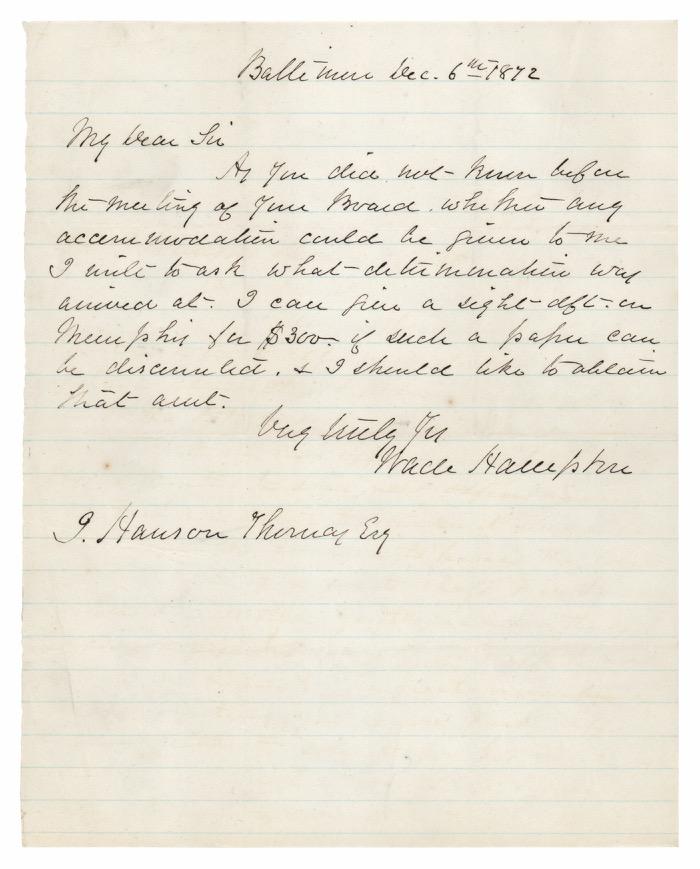 Baltimore Dec. 6th 1872
My Dear Sir
As you did not know before
the meeting of your Board whether any
accommodation could be given to me
I write to ask what determination was
arrived at. I can give a sight dft. on
Memphis for $300. if such a paper can
be discounted, & I should like to obtain
that amt.
Very truly Yrs
Wade Hampton
J. Hanson Thomas Esq